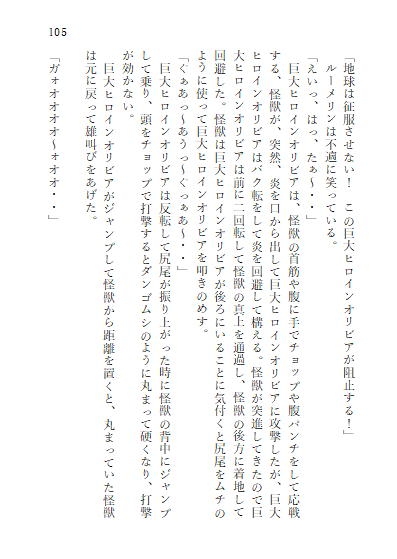 105
「地球は征服させない! この巨大ヒロインオリビアが阻止する!」
ルーメリンは不適に笑っている。
「えいっ、はっ、たぁ~・・」
巨大ヒロインオリビアは、怪獣の首筋や腹に手でチョップや腹パンチをして応戦
する、怪獣が、突然、炎を口から出して巨大ヒロインオリビアに攻撃したが、巨大
ヒロインオリビアはバク転をして炎を回避して構える。怪獣が突進してきたので巨
大ヒロインオリビアは前に二回転して怪獣の真上を通過し、怪獣の後方に着地して
回避した。怪獣は巨大ヒロインオリビアが後ろにいることに気付くと尻尾をムチの
ように使って巨大ヒロインオリビアを叩きのめす。
「ぐぁあっ~あうっ~ぐっぁあ~・・」
巨大ヒロインオリビアは反転して尻尾が振り上がった時に怪獣の背中にジャンプ
して乗り、頭をチョップで打撃するとダンゴムシのように丸まって硬くなり、打撃
が効かない。
巨大ヒロインオリビアがジャンプして怪獣から距離を置くと、丸まっていた怪獣
は元に戻って雄叫びをあげた。
「ガォオオオオ~ォオオ・・」